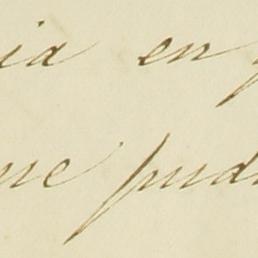 ia en
ue pud